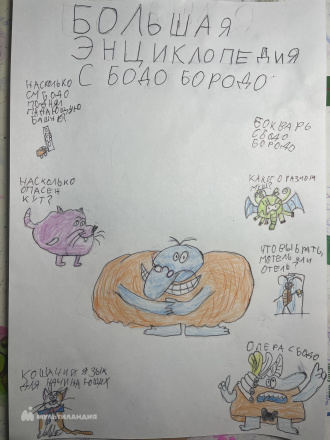 БОЛЬШАЯ
ЭНЦИКЛОПЕДИЯ
С БОДО БОРОДО
НАСКОЛЬКО
СМ БОДО
ПОДНЯЛ
ПАДАЮЩУЮ
БАШНЮ?
БУКВАРЬ
С БОДО
БОРОДО
НАСКОЛЬКО
ОПАСЕН
КУТ?
КАКОГО РАЗМЕРА
ЧТО ВЫБРАТЬ,
МОТЕЛЬ ИЛИ
ОТЕЛЬ?
ОПЕРА С БОДО
КОШАЧИЙ ЯЗЫК
ДЛЯ НАЧИНАЮЩИХ
МУЛЬТИЛАНДИЯ